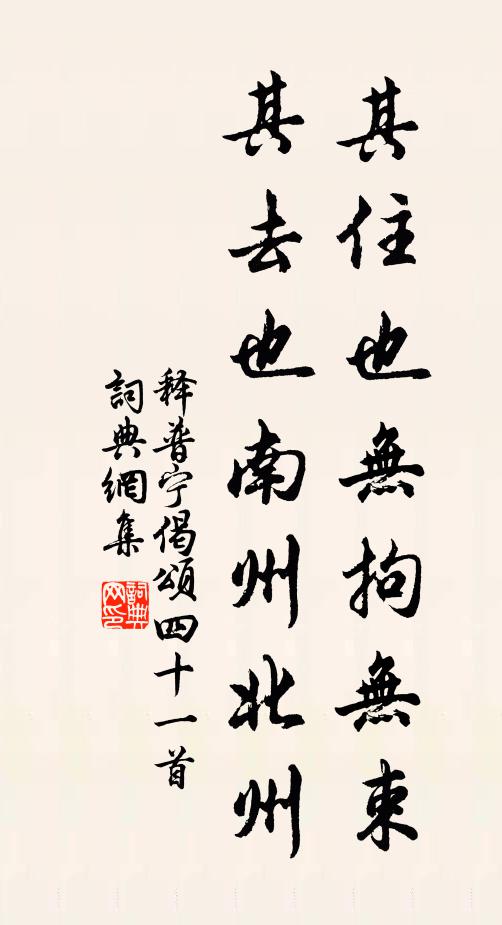 其住也無拘無束
其去也南州北州
释普宁偈頌四十一首
詞典網集
詞典
网印